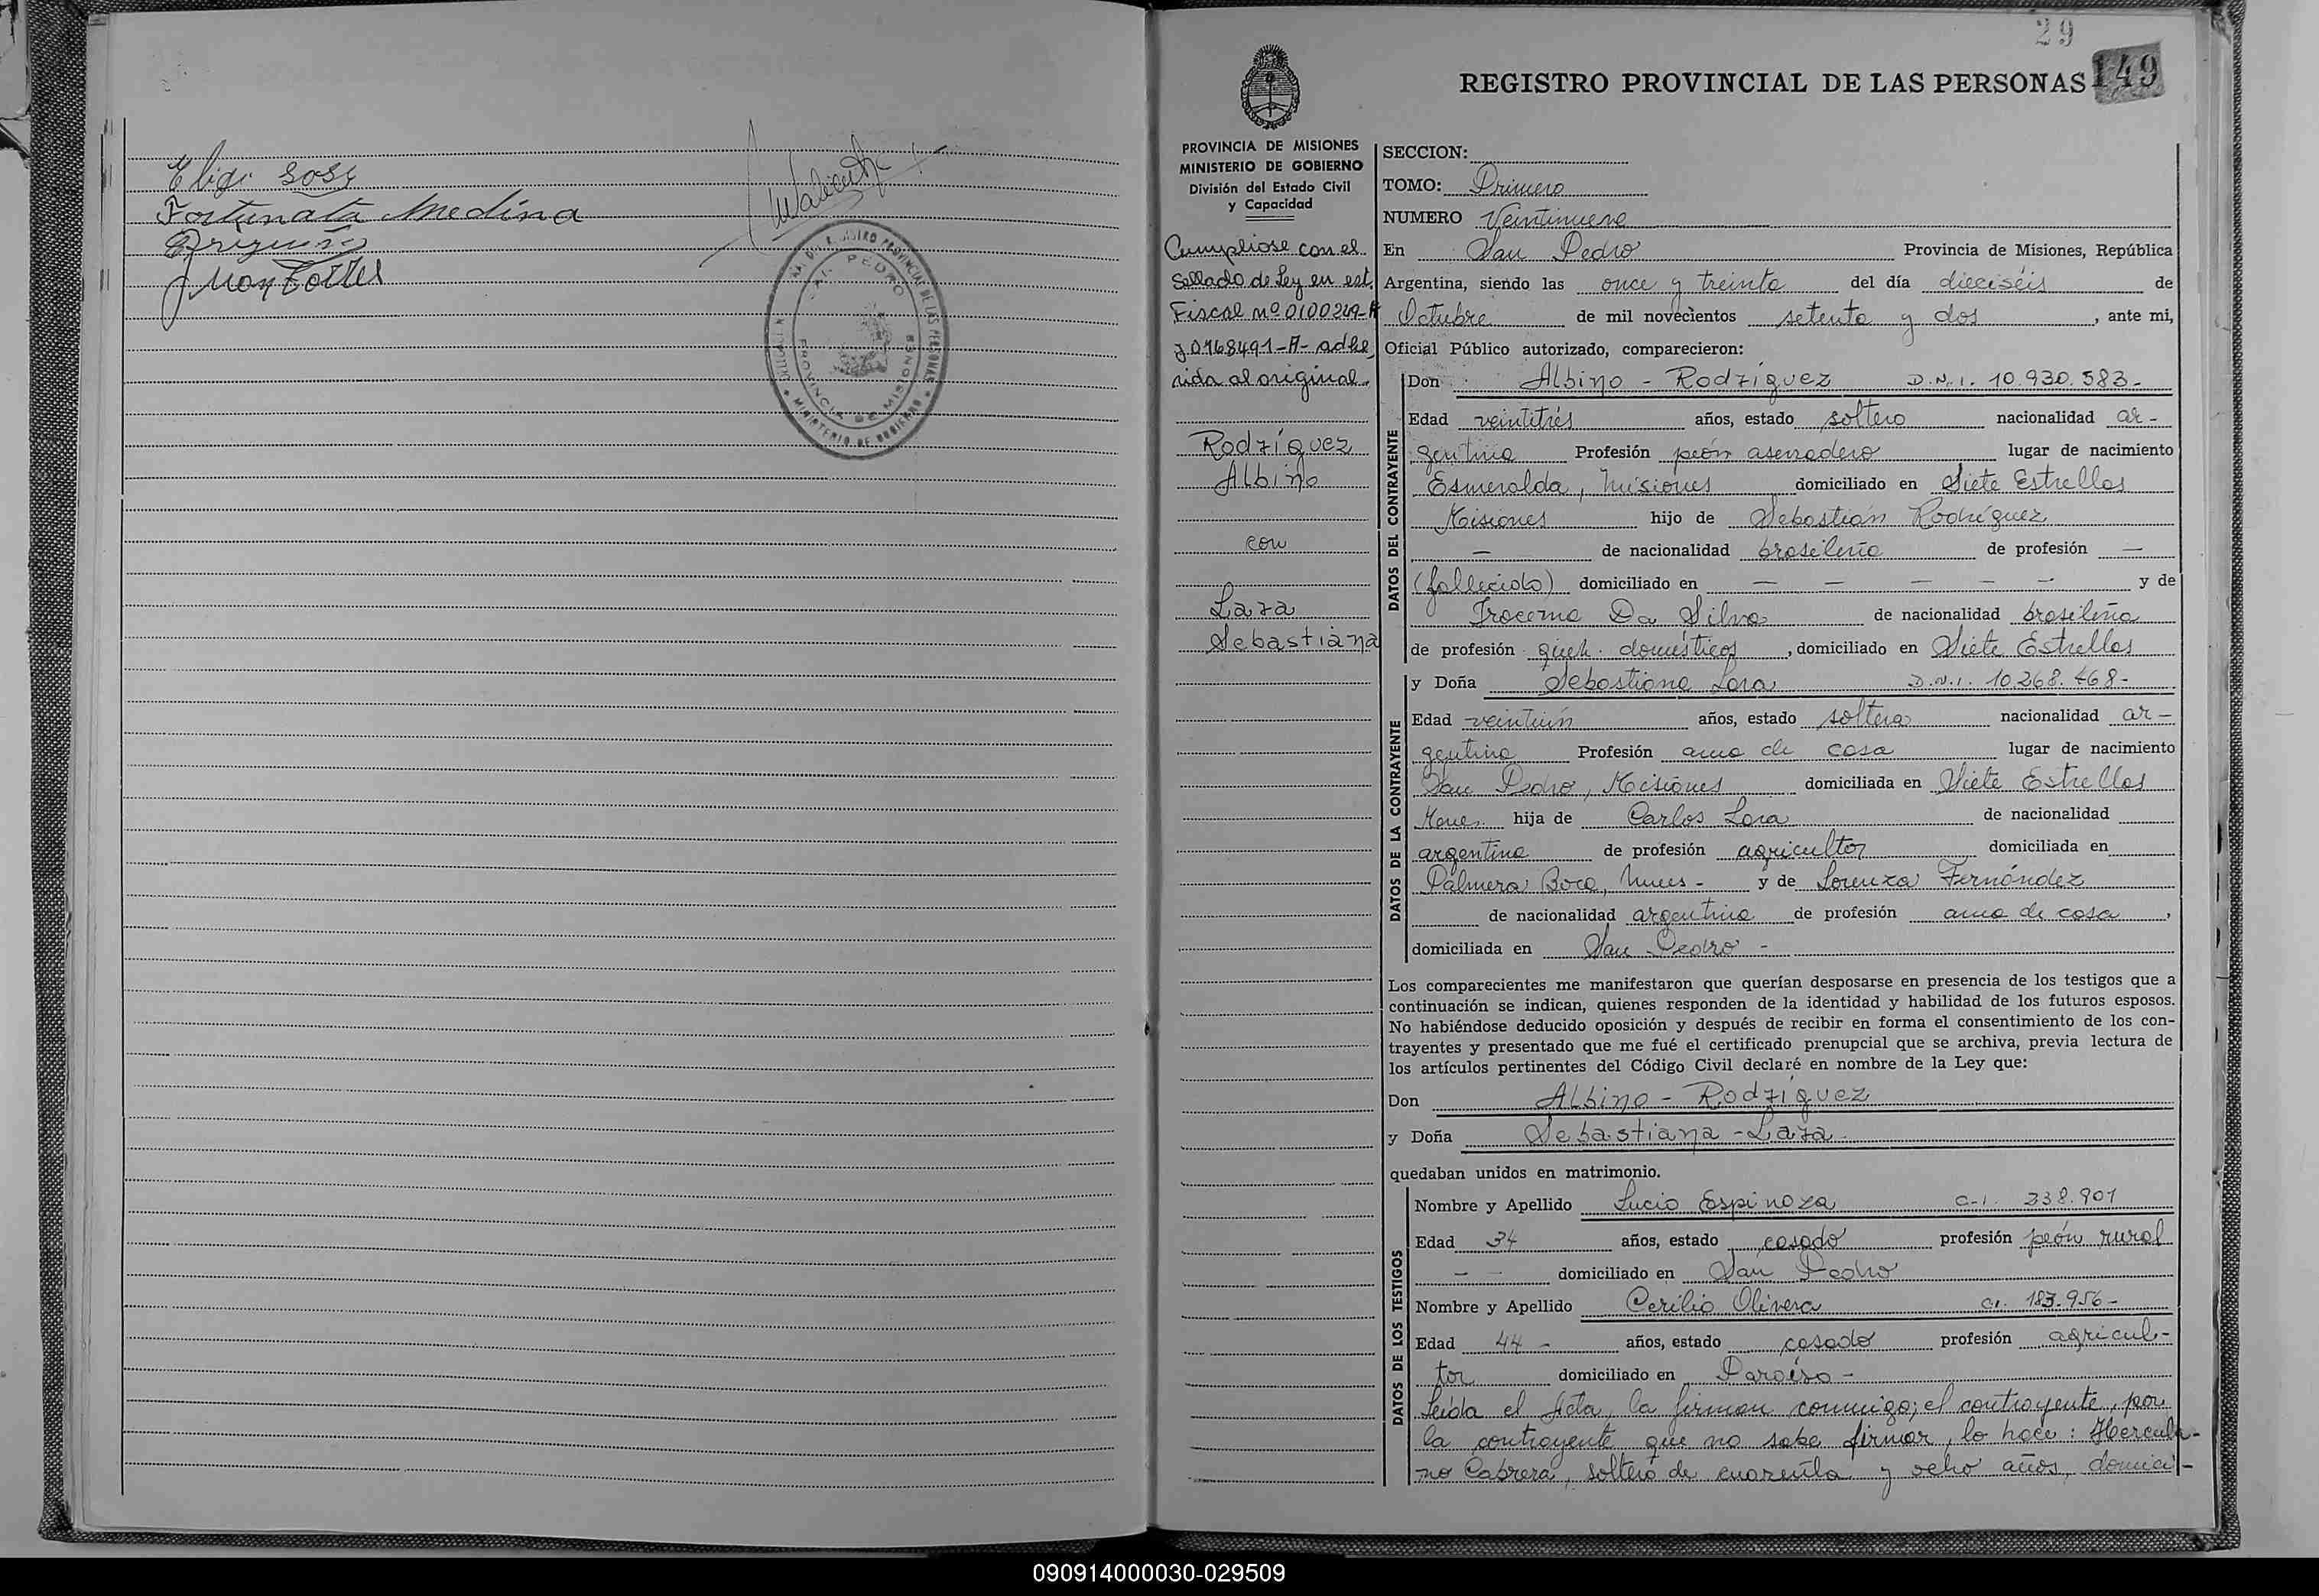 Eligio Sosa
Fortunata Medina
PROVINCIA DE MISIONES
29
149
REGISTRO PROVINCIAL DE LAS PERSONAS
PROVINCIA DE MISIONES
MINISTERIO DE GOBIERNO
División del Estado Civil
y Capacidad
Cumpliose con el
Sellado de Ley en est.
Fiscal nº 0100249-A
y 0168491-A- adhe
rida al original.
Rodríguez
Albino
con
Lara
Sebastiana
SECCION:
TOMO: Primero
NUMERO Veintinueve
En San Pedro Provincia de Misiones, República
Argentina, siendo las once y treinta del día dieciséis de
Octubre de mil novecientos setenta y dos, ante mi,
Oficial Público autorizado, comparecieron:
DATOS DEL CONTRAYENTE
Don Albino - Rodríguez D.N.I. 10.930.583-
Edad veintitrés años, estado soltero nacionalidad ar-
gentina Profesión peón aserradero lugar de nacimiento
Esmeralda, Misiones domiciliado en Siete Estrellas
Misiones hijo de Sebastián Rodríguez
— de nacionalidad brasileña de profesión —
(fallecido) domiciliado en — — — — — y de
Irocema Da Silva de nacionalidad brasileña
de profesión queh. domésticos, domiciliado en Siete Estrellas
DATOS DE LA CONTRAYENTE
y Doña Sebastiana Lara D.N.I. 10.268.468-
Edad veintiún años, estado soltera nacionalidad ar-
gentina Profesión ama de casa lugar de nacimiento
San Pedro, Misiones domiciliada en Siete Estrellas
hija de Carlos Lara de nacionalidad
argentina de profesión agricultor domiciliada en
Palmera Boca, Mnes- y de Lorenza Fernández
de nacionalidad argentina de profesión ama de casa,
domiciliada en San Pedro -
Los comparecientes me manifestaron que querían desposarse en presencia de los testigos que a
continuación se indican, quienes responden de la identidad y habilidad de los futuros esposos.
No habiéndose deducido oposición y después de recibir en forma el consentimiento de los con-
trayentes y presentado que me fué el certificado prenupcial que se archiva, previa lectura de
los artículos pertinentes del Código Civil declaré en nombre de la Ley que:
Don Albino - Rodríguez
y Doña Sebastiana - Lara
quedaban unidos en matrimonio.
DATOS DE LOS TESTIGOS
Nombre y Apellido Lucio Espinoza C.I. 338.901
Edad 34 años, estado casado profesión peón rural
— — domiciliado en San Pedro
Nombre y Apellido Cerilio Olivera C.I. 183.956-
Edad 44 - años, estado casado profesión agricul-
tor domiciliado en Paraíso -
Leída el Acta, la firman conmigo; el contrayente, por
la contrayente que no sabe firmar, lo hace: Hercula-
no Cabrera, soltero de cuarenta y ocho años, domici-
090914000030-029509